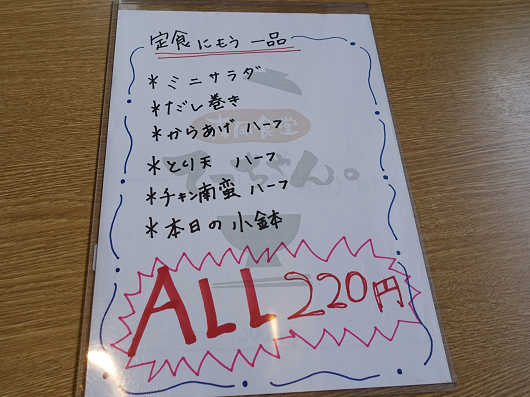 定食にもう一品
*ミニサラダ
*だし巻き
*からあげ ハーフ
*とり天 ハーフ
*チキン南蛮 ハーフ
*本日の小鉢
ALL 220円